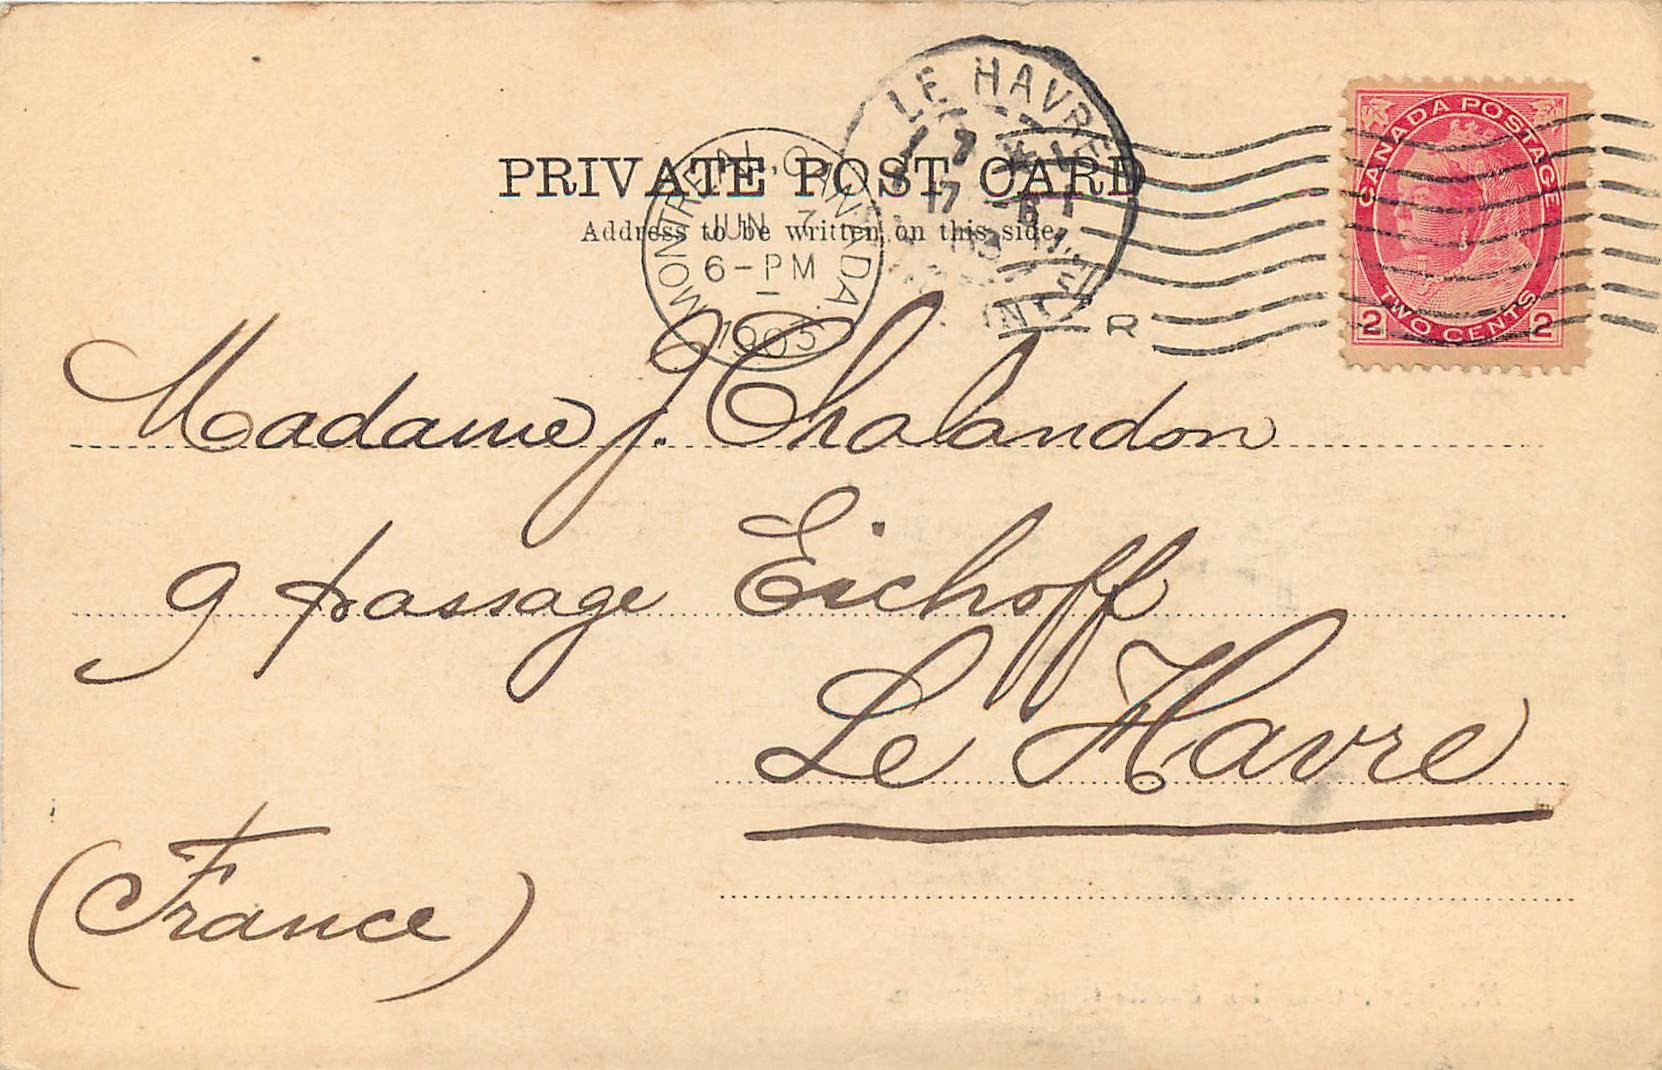 LE HAVRE
17 -6
CANADA POSTAGE
TWO CENTS
2 2
PRIVATE POST CARD
Address to be written on this side.
MONTREAL, CANADA
JUN 7
6-PM
1903
R
Madame J. Chalandon
9 passage Eichoff
Le Havre
(France)